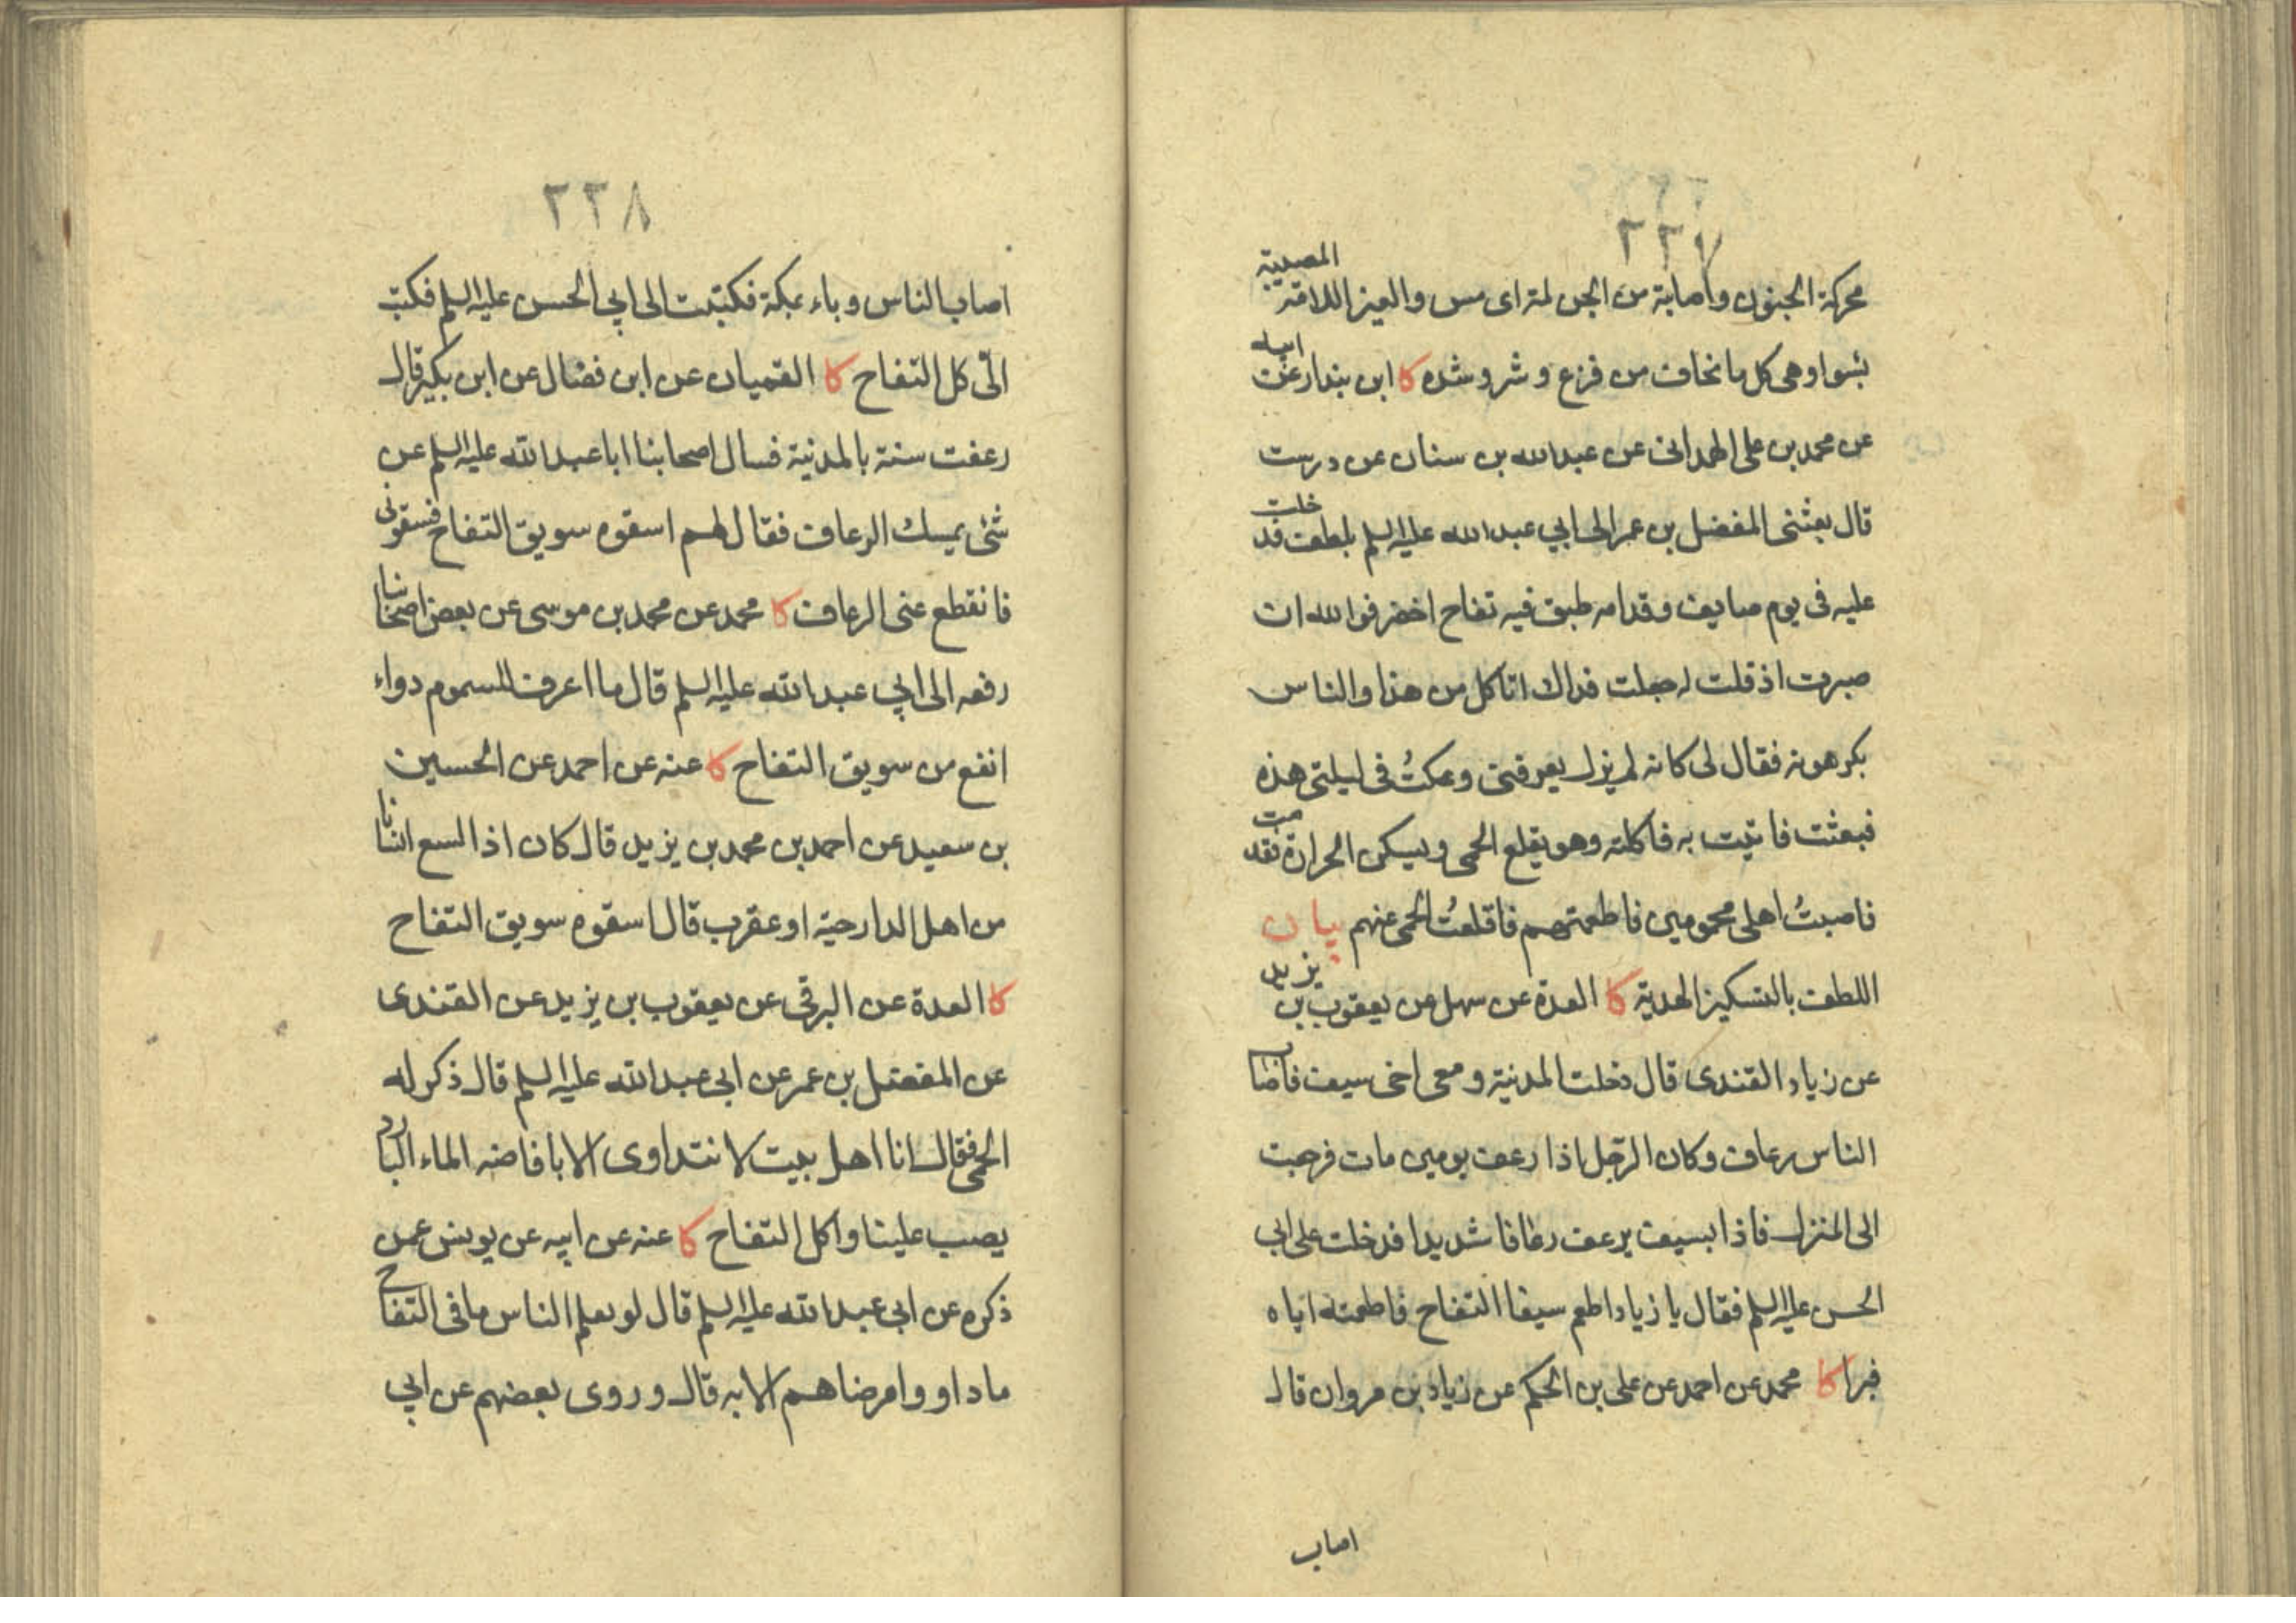 ٢٢٧
محركة الجنون واصابة من الجن لمة اى مس والعين اللامة المصيبة
بسوا وهى كل ما تخاف من فزع وشر وشده كا ابن بندار عن ابيه
عن محمد بن على الهمدانى عن عبدالله بن سنان عن درست
قال بعثنى المفضل بن عمر الى ابي عبدالله عليه السلم بلطف فدخلت
عليه فى يوم صايف وقدامه طبق فيه تفاح اخضر فوالله ان
صبرت اذ قلت له جعلت فداك اتاكل من هذا والناس
يكرهونه فقال لى كانه لم يزل يعرفنى وعكتُ فى ليلتى هذه
فبعثت فاتيت به فاكلته وهو يقلع الحمى ويسكن الحرارة فقدمت
فاصبتُ اهلى محمومين فاطعمتهم فاقلعتُ الحمى عنهم بيان
اللطف بالتسكين الهدية كا العدة عن سهل عن يعقوب بن يزيد
عن زياد القندى قال دخلت المدنية ومعى اخى سيف فاصاب
الناس رعاف وكان الرّجل اذا رعف يومين مات فرجعت
الى المنزل فاذا بسيف يرعف رعافا شديدا فدخلت على ابى
الحسن عليه السلم فقال يا زياد اطعم سيفا التفاح فاطعمته اياه
فبرا كا محمد عن احمد عن على بن الحكم عن زياد بن مروان قال
اصاب
٢٢٨
اصاب الناس وباء بمكة فكتبت الى ابي الحسن عليه السلم فكتب
الىّ كل التفاح كا القميان عن ابن فضال عن ابن بكير قال
رعفت سنة بالمدنية فسال اصحابنا ابا عبدالله عليه السلم عن
شئ يمسك الرعاف فقال لهم اسقوه سويق التفاح فسقونى
فانقطع عنى الرعاف كا محمد عن محمد بن موسى عن بعض اصحابنا
رفعه الى ابي عبدالله عليه السلم قال ما اعرف للسموم دواء
انفع من سويق التفاح كا عنه عن احمد عن الحسين
بن سعيد عن احمد بن محمد بن يزيد قال كان اذا لسع انسانا
من اهل الدار حية او عقرب قال اسقوه سويق التفاح
كا العدة عن البرقى عن يعقوب بن يزيد عن القندى
عن المفضل بن عمر عن ابى عبدالله عليه السلم قال ذكر له
الحمى فقال انا اهل بيت لا نتداوى الا بافاضه الماء البارد
يصب علينا واكل التفاح كا عنه عن ابيه عن يونس عمن
ذكره عن ابى عبدالله عليه السلم قال لو يعلم الناس ما فى التفاح
ما داووا مرضاهم الا به قال وروى بعضهم عن ابي